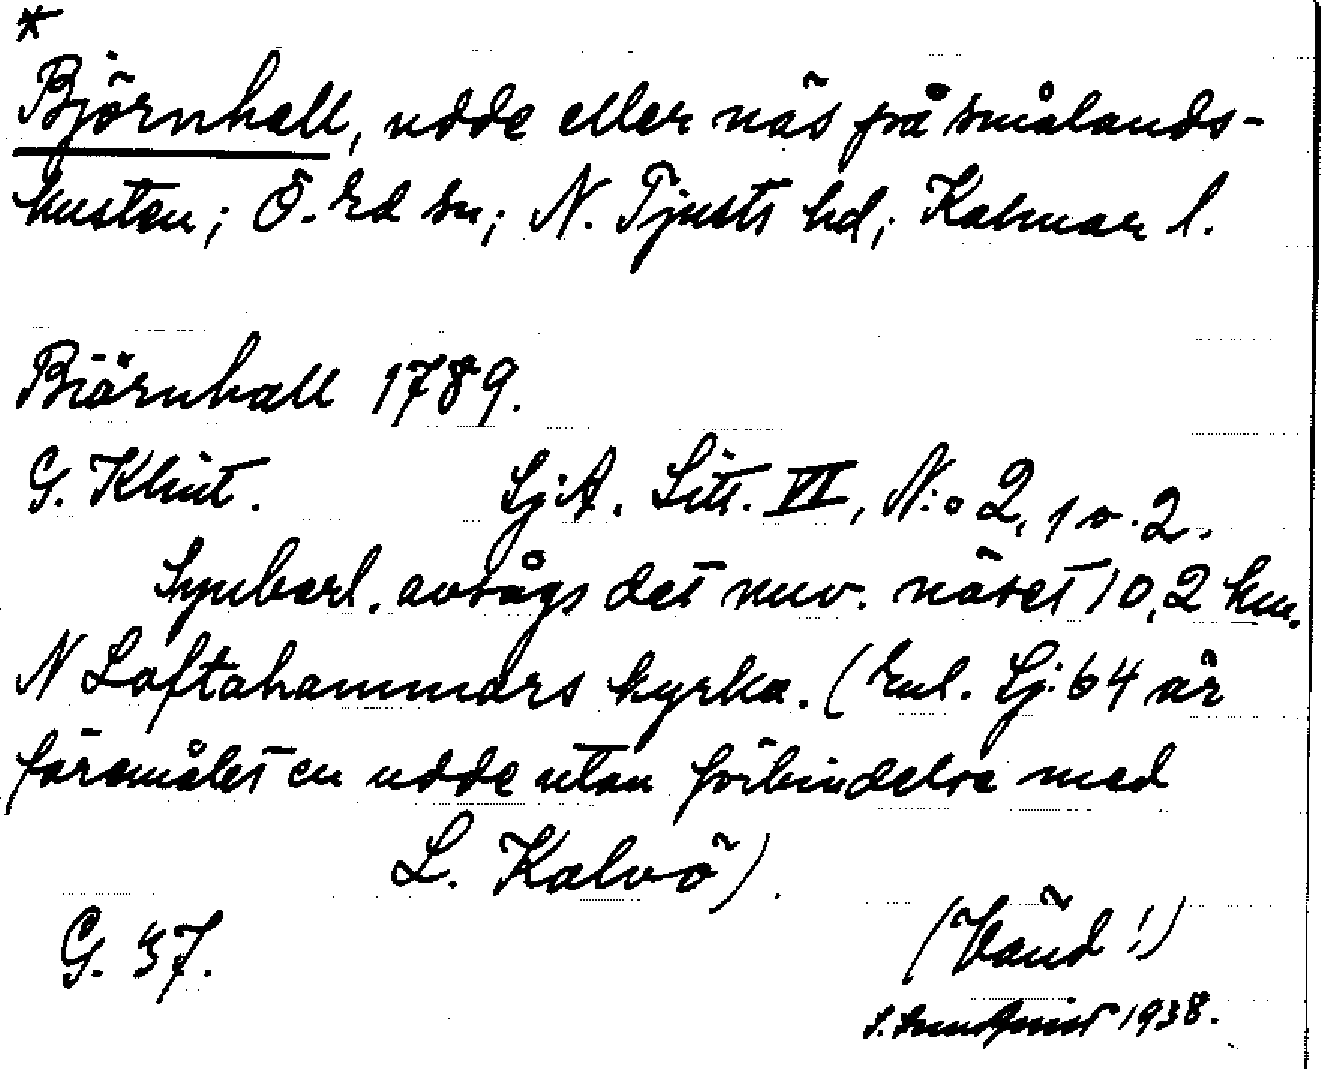 *
Björnhall, udde eller näs på smålands-
kusten; Ö. Ed sn; N. Tjusts hd; Kalmar l.
Biörnhall 1789.
G. Klint. Sj.A. Litt. VI, N:o 2, 1 o. 2.
Synbarl. avságs det nuv. näset 10,2 km.
N Loftahammars kyrka. (Enl. Sj. 64 är
föremålet en udde utan förbindelse med
L. Kalvö).
G. 37.
(Vänd!)
1938.